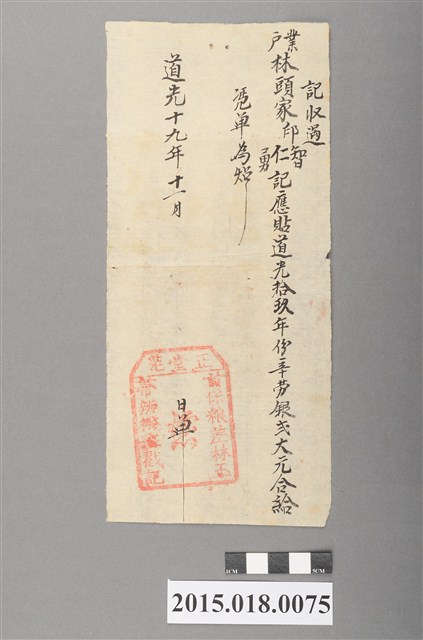 記收過
業戶林頭家印智仁勇記應貼道光拾玖年份辛勞銀弍大元合給
憑單為炤
道光十九年十一月
日單
正堂范
戳記
1CM
5CM
2015.018.0075